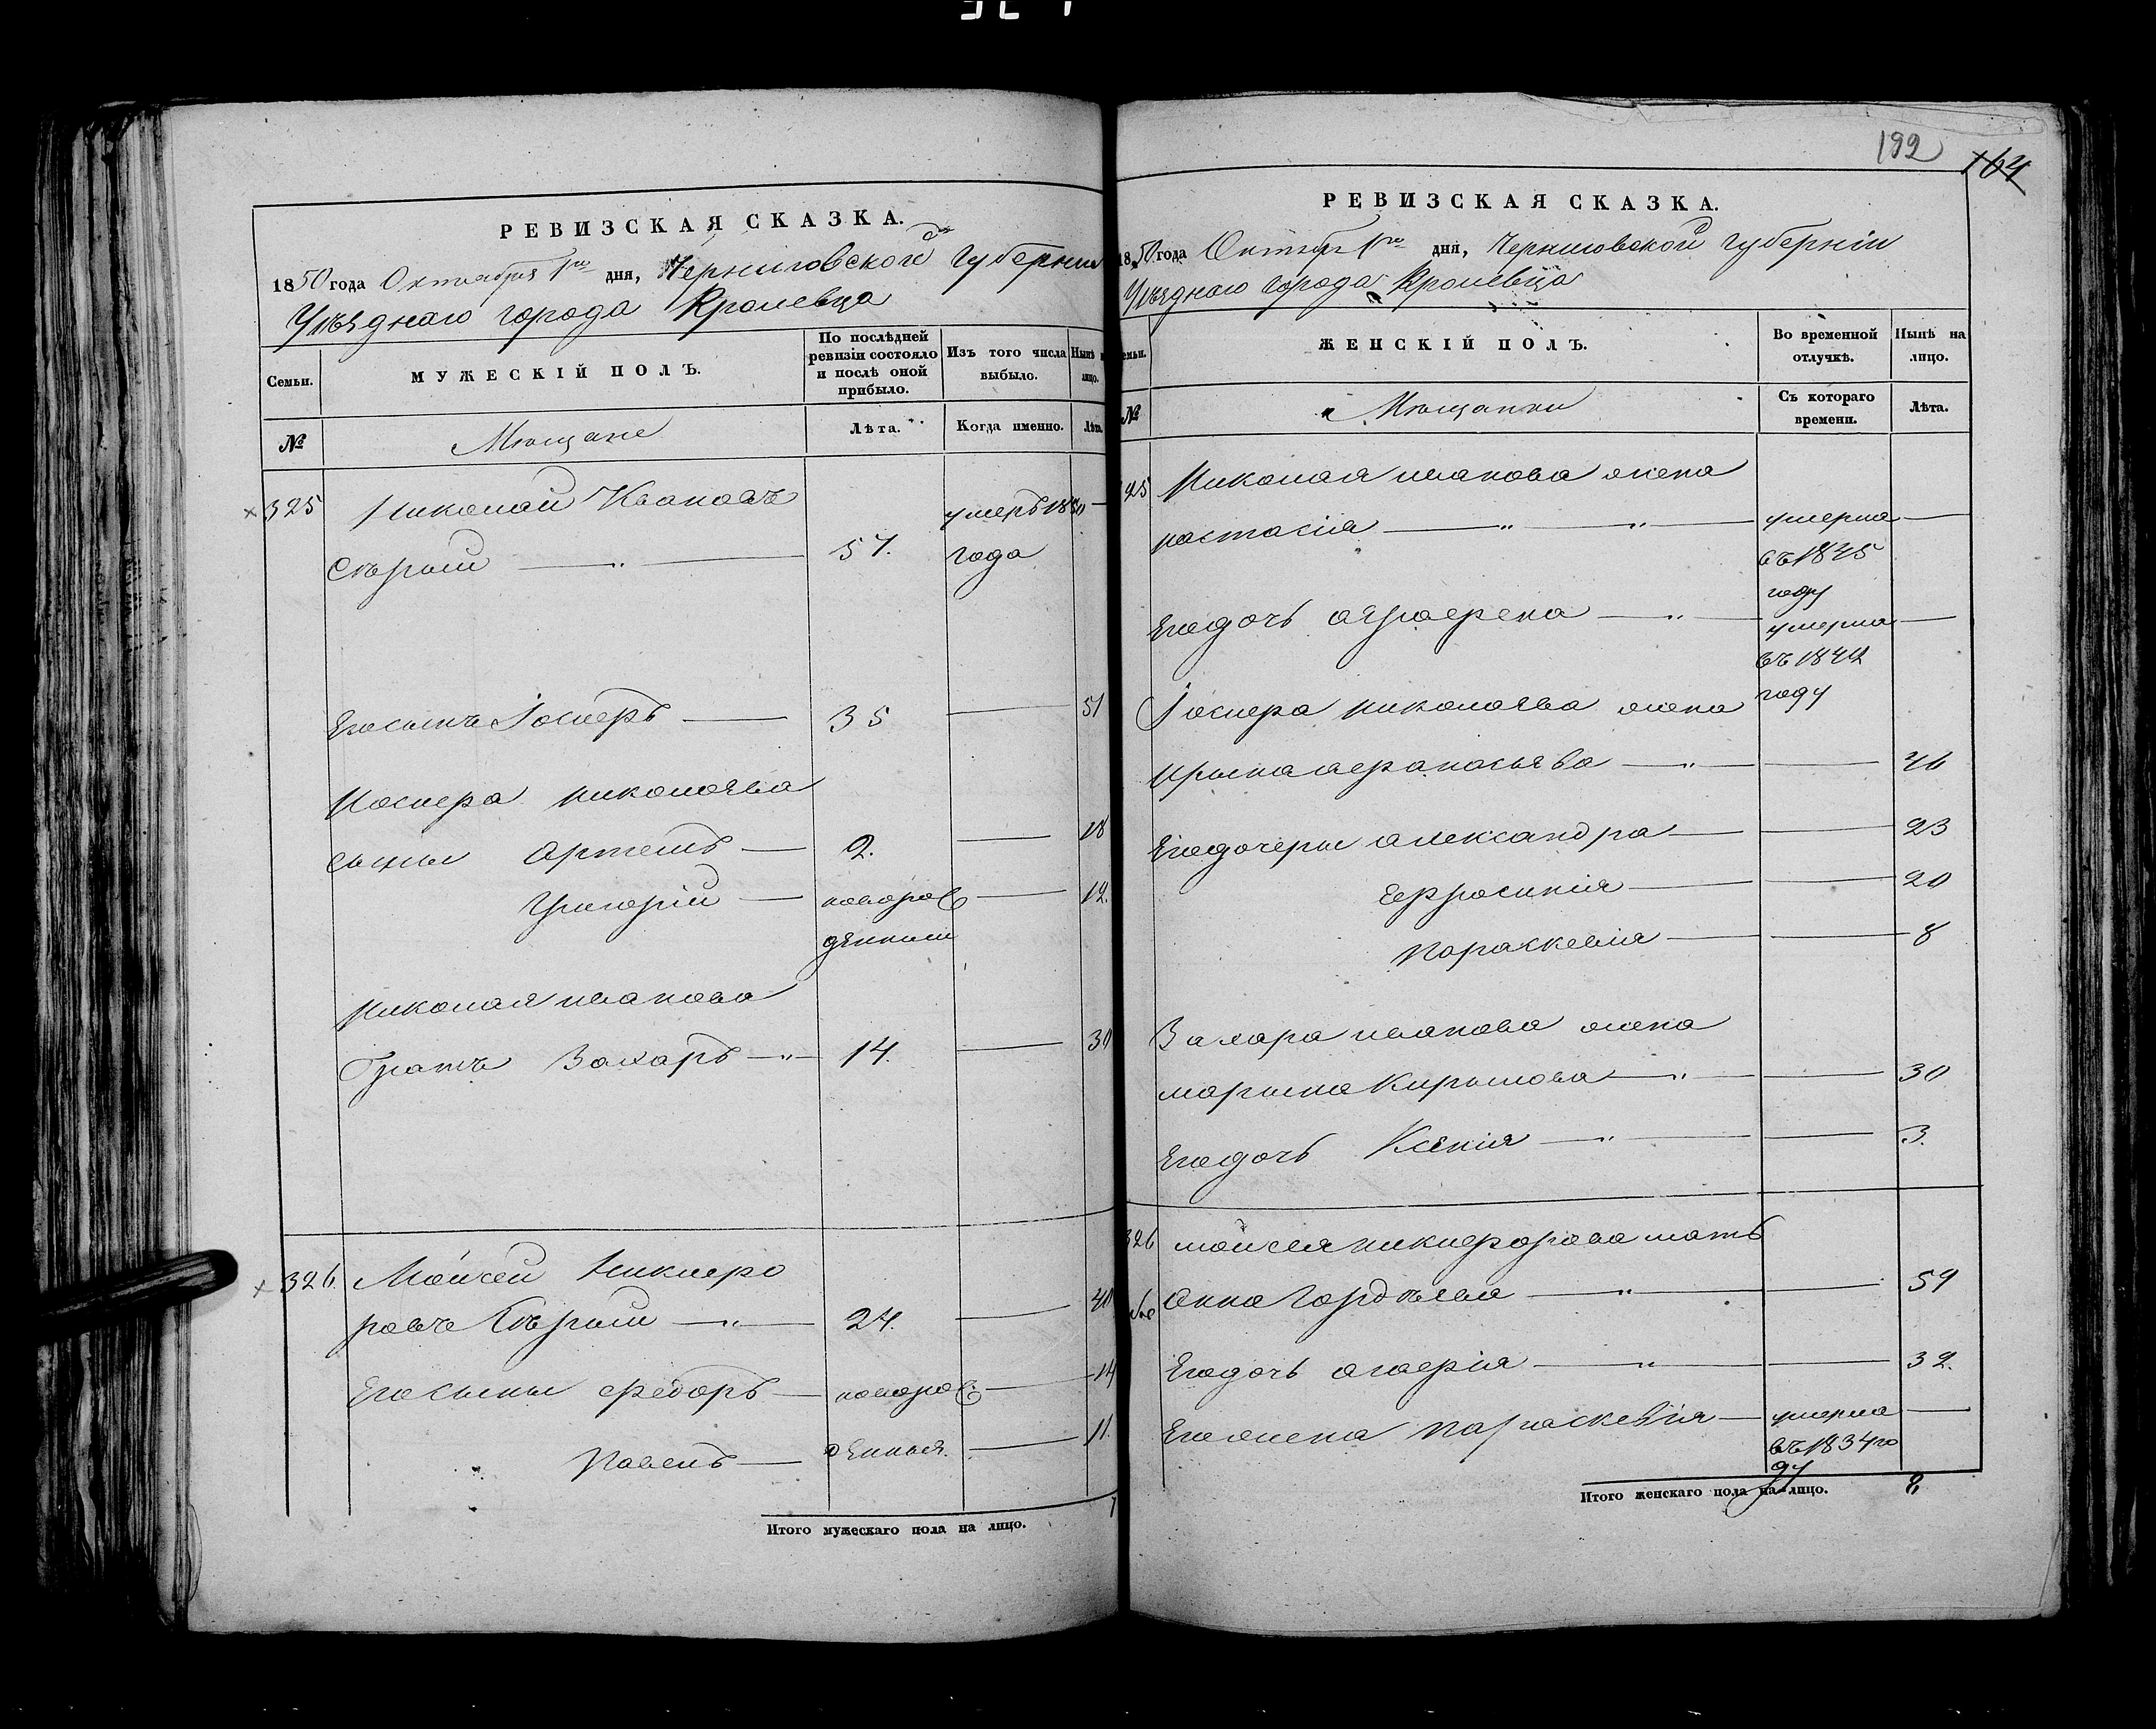 РЕВИЗСКАЯ СКАЗКА.
1850 года Октября 1го дня, Черниговской Губернии
Уѣзднаго города Кролевца
Семьи.
МУЖЕСКІЙ ПОЛЪ.
По послѣдней ревизіи состояло и послѣ оной прибыло.
Изъ того числа выбыло.
Нынѣ на лицо.
№
Мѣщане
Лѣта.
Когда именно.
Лѣта.
325 Николай Ивановъ
умеръ 1850
Сѣрый 57. года
Его сынъ Іосифъ 35 51
Иосифа николаева
сыны Артемъ 2. 18
Григорій новорож 12.
денный
Николая иванова
братъ Захаръ 14. 30
326. Мойсей Никифо
ровъ Сѣрый 24. 40
Его сыны Федоръ новорож 14
Павелъ денныя. 11.
Итого мужескаго пола на лицо. 7
192
164
РЕВИЗСКАЯ СКАЗКА.
1850 года Октября 1го дня, Черниговской губерніи
Уѣзднаго города Кролевца
Семьи.
ЖЕНСКІЙ ПОЛЪ.
Во временной отлучкѣ.
Нынѣ на лицо.
№
Мѣщанки
Съ котораго времени.
Лѣта.
325 Николая иванова жена
настасія умерла
въ 1845
году
Его дочь аграфена умерла
въ 1842
году
Іосифа николаева жена
ирына афанасьева 46
Его дочеры александра 23
Ефросинія 20
параскевія 8
Захара иванова жена
марына Кирылова 30
Его дочь Ксенія 3.
326 мойсея никифорова мать
анна Гордѣева 59
Его дочь агафія 32.
Его жена параскевія умерла
въ 1834 го
ду
Итого женскаго пола на-лицо. 8,